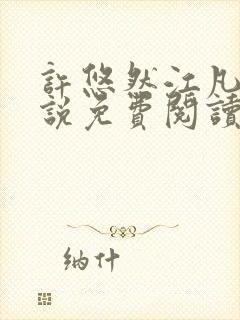 許悠然江凡
說免費閱讀
納什